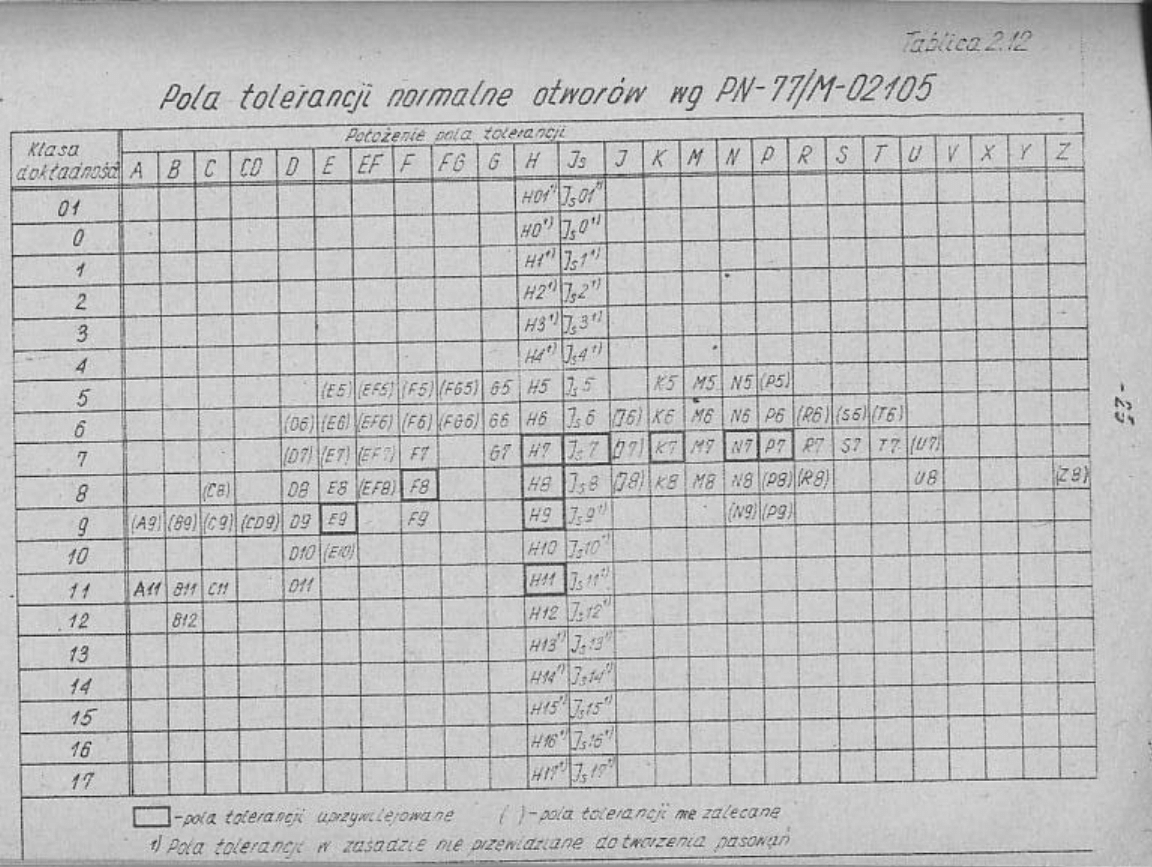 Tablica 2.12
Pola tolerancji normalne otworów wg PN-77/M-02105
Klasa dokładności
Położenie pola tolerancji
A B C CD D E EF F FG G H Js J K M N P R S T U V X Y Z
01 H01¹) Js01¹)
0 H0¹) Js0¹)
1 H1¹) Js1¹)
2 H2¹) Js2¹)
3 H3¹) Js3¹)
4 H4¹) Js4¹)
5 (E5) (EF5) (F5) (FG5) G5 H5 Js5 K5 M5 N5 (P5)
6 (D6) (E6) (EF6) (F6) (FG6) G6 H6 Js6 (J6) K6 M6 N6 P6 (R6) (S6) (T6)
7 (D7) (E7) (EF7) F7 G7 H7 Js7 (J7) K7 M7 N7 P7 R7 S7 T7 (U7)
8 (C8) D8 E8 (EF8) F8 H8 Js8 (J8) K8 M8 N8 (P8) (R8) U8 (Z8)
9 (A9) (B9) (C9) (CD9) D9 E9 F9 H9 Js9¹) (N9) (P9)
10 D10 (E10) H10 Js10¹)
11 A11 B11 C11 D11 H11 Js11¹)
12 B12 H12 Js12¹)
13 H13¹) Js13¹)
14 H14¹) Js14¹)
15 H15¹) Js15¹)
16 H16¹) Js16¹)
17 H17¹) Js17¹)
-pola tolerancji uprzywilejowane ( )-pola tolerancji nie zalecane
1) Pola tolerancji w zasadzie nie przewidziane do tworzenia pasowań
-23